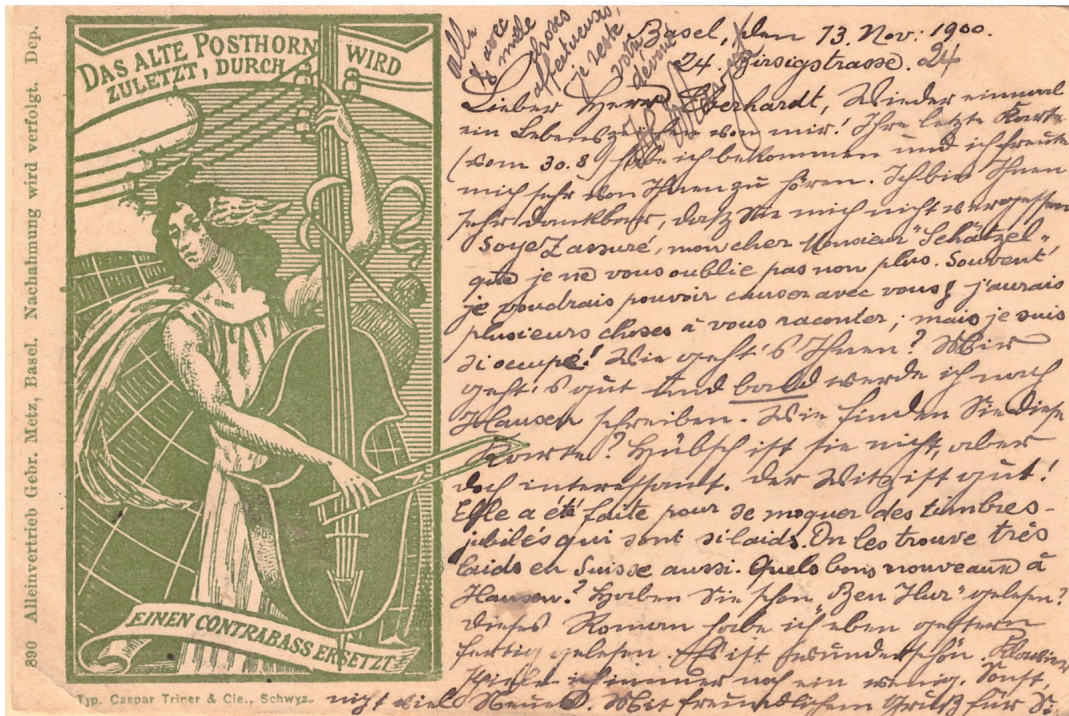 DAS ALTE POSTHORN WIRD
ZULETZT, DURCH
EINEN CONTRABASS ERSETZT
890 Alleinvertrieb Gebr. Metz, Basel. Nachahmung wird verfolgt. Dep.
Typ. Caspar Triner & Cie., Schwyz.
Basel, den 13. Nov: 1900.
24. Birsigstrasse. 24
Lieber Herr Eberhardt, Wieder einmal
ein Lebenszeichen von mir! Ihre letzte Karte
(vom 30.8) habe ich bekommen und ich freute
mich sehr von Ihnen zu hören. Ich bin Ihnen
sehr dankbar, daß Sie mich nicht vergessen
Soyez assuré, mon cher Monsieur "Schätzel",
que je ne vous oublie pas non plus. Souvent
je voudrais pouvoir causer avec vous; j'aurais
plusieurs choses à vous raconter; mais je suis
si occupé! Wie geht's Ihnen? Mir
geht's gut und bald werde ich nach
Hausen schreiben. Wie finden Sie diese
Karte? Hübsch ist sie nicht, aber
doch interessant. Der Witz ist gut!
Elle a été faite pour se moquer des timbres-
jubilés qui sont si laids. On les trouve très
laids en Suisse aussi. Quels bons nouveaux à
Hausen? Haben Sie schon "Ben Hur" gelesen?
Diesen Roman habe ich eben gestern
fertig gelesen. Es ist wunderschön. Klavier
spiele ich immer noch ein wenig. Sonst
nicht viel Neues. Mit freundlichem Gruß für
alle
& avec
mille
choses
affectueuses,
je reste
votre
dévoué